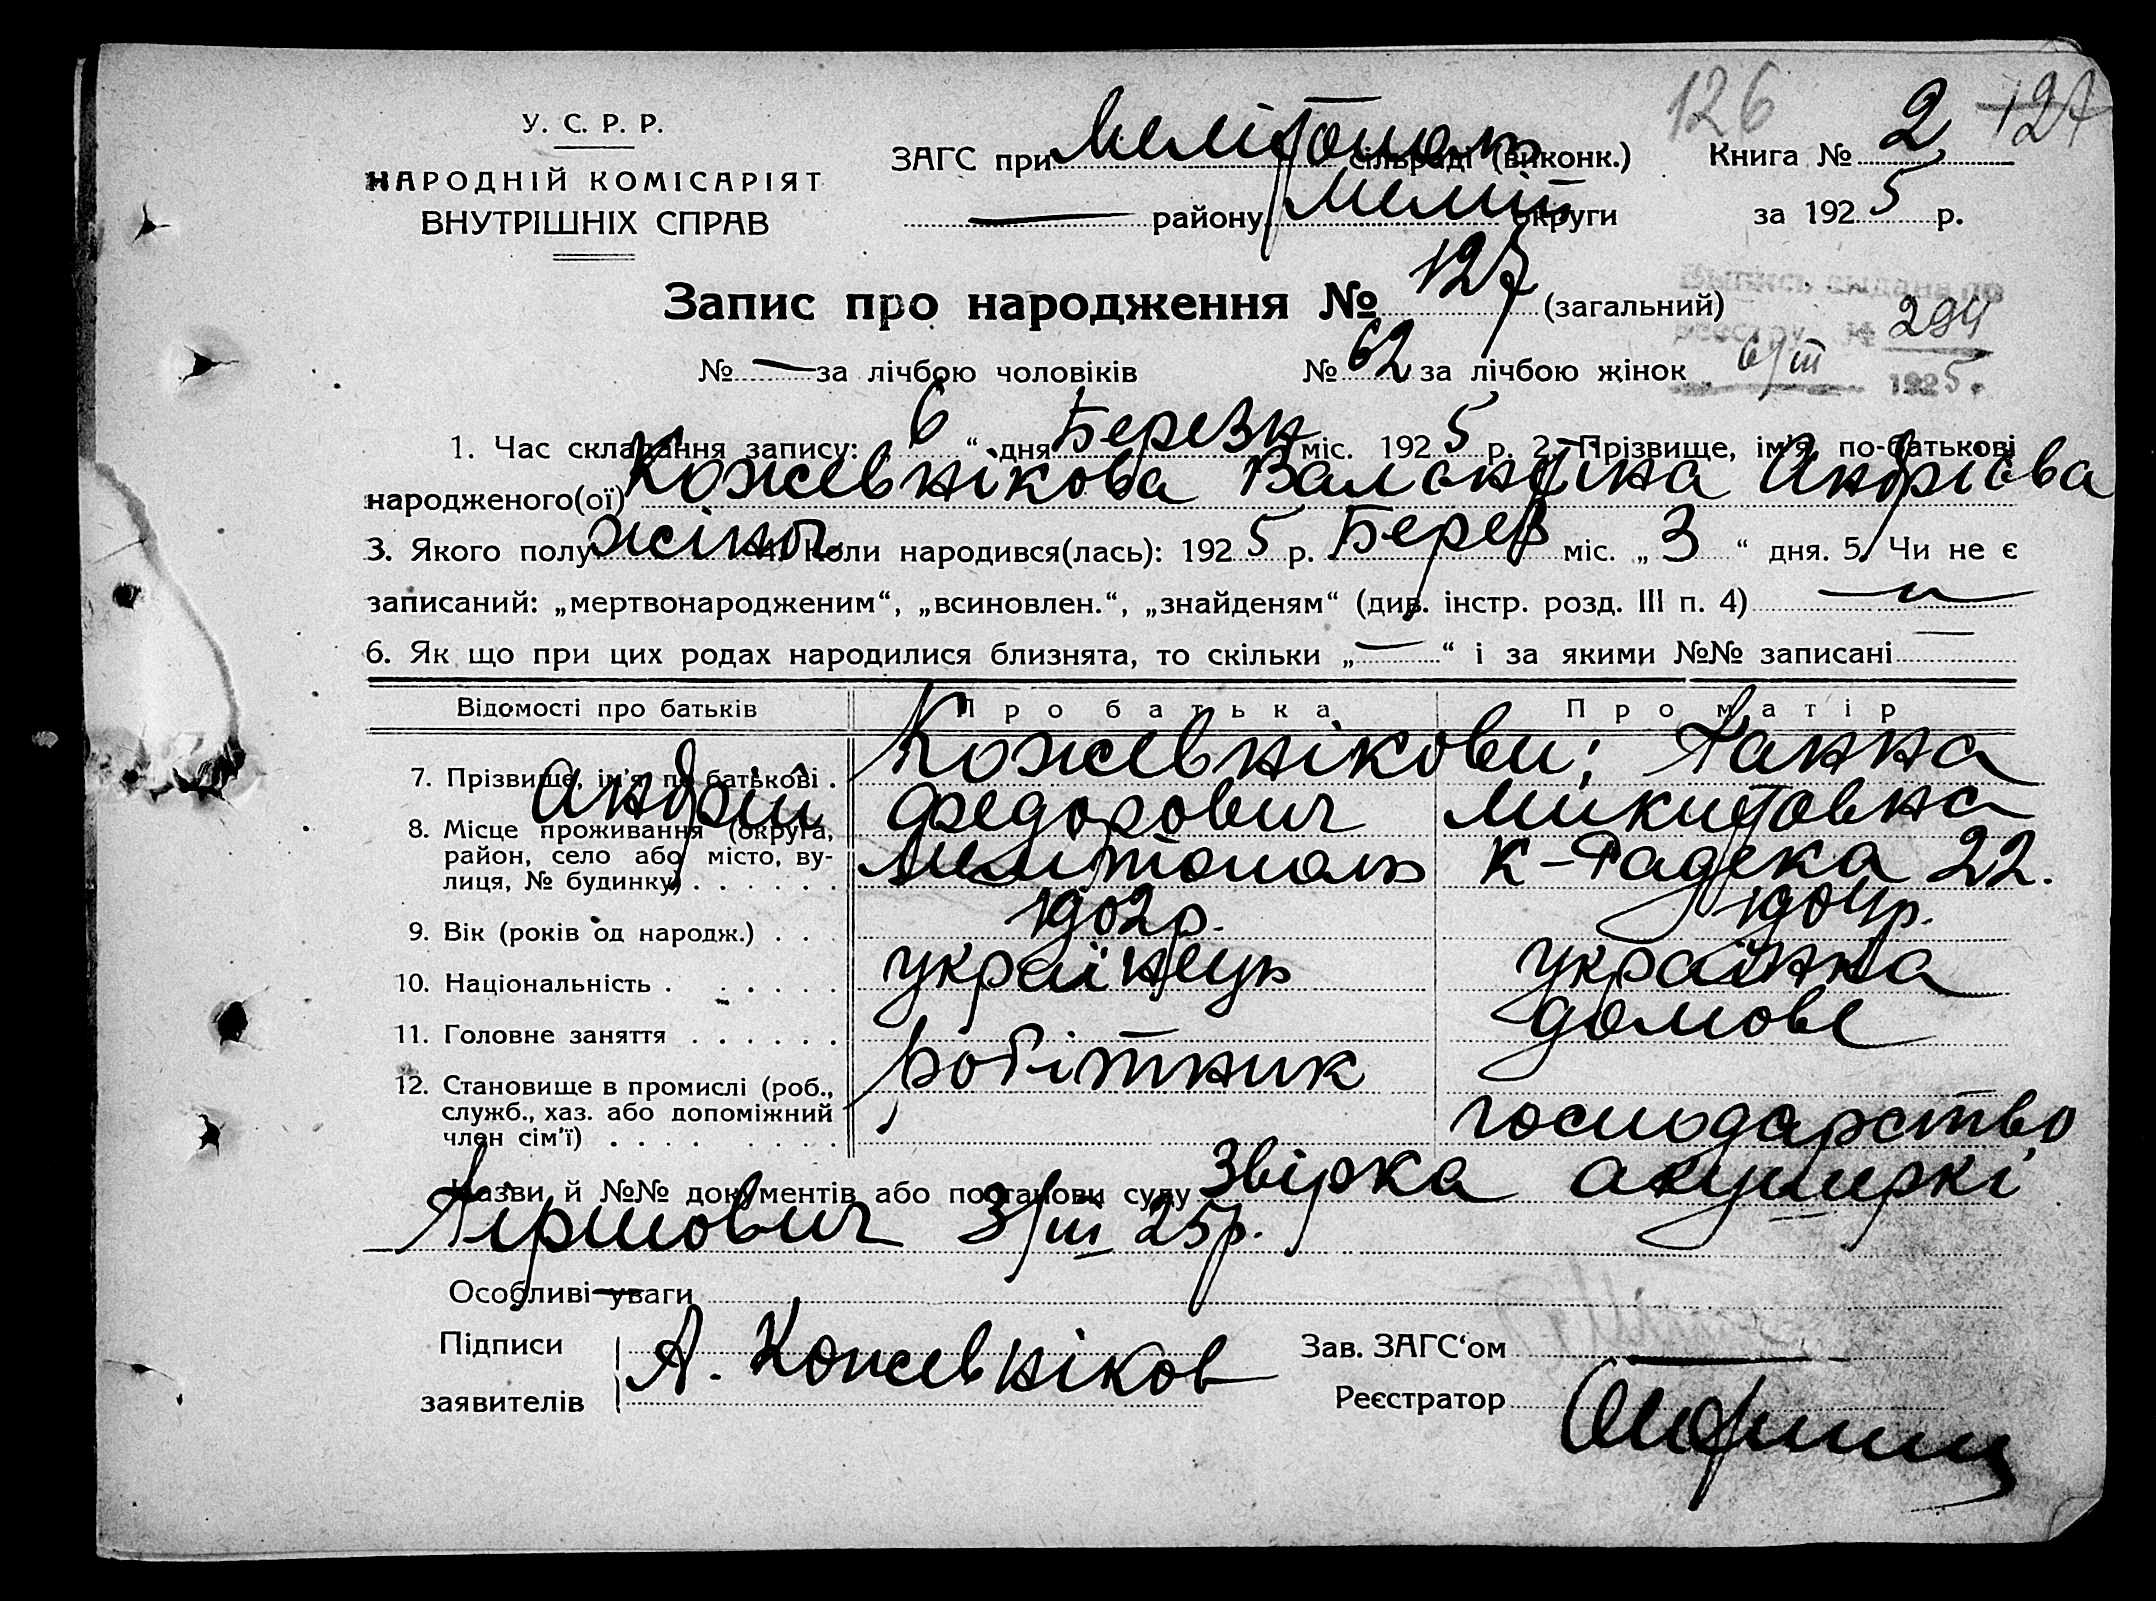 126 127
У. С. Р. Р.
НАРОДНІЙ КОМІСАРІЯТ
ВНУТРІШНІХ СПРАВ
ЗАГС при Мелітополь сільраді (виконк.) Книга № 2
— району Меліт округи за 1925 р.
Запис про народження № 127 (загальний)
Выпись выдана по
реестру № 294
6/III 1925 г.
№ — за лічбою чоловіків № 62 за лічбою жінок
1. Час складання запису: 6 “ дня Березн міс. 1925 р. 2. Прізвище, ім’я, по-батькові
народженого(ої) Кожевнікова Валєнтіна Андрієва
3. Якого полу жіноч 4. Коли народився(лась): 1925 р. Берез міс. „ 3 “ дня. 5. Чи не є
записаний: „мертвонародженим“, „всиновлен.“, „знайденям“ (див. інстр. розд. III п. 4) —
6. Як що при цих родах народилися близнята, то скільки „ — “ і за якими №№ записані —
Відомості про батьків Про батька Про матір
7. Прізвище, ім’я, по батькові . Кожевнікови; Ганна
Андрій Федорович Микитовна
8. Місце проживання (округа, район, село або місто, вулиця, № будинку) . . . . . . Мелітополь К-Радека 22.
9. Вік (років од народж.) . . . 1902 р. 1904 р.
10. Національність . . . . . . українець українка
11. Головне заняття . . . . . . робітник домове
12. Становище в промислі (роб., служб., хаз. або допоміжний член сім’ї) . . . . господарство
Назви й №№ документів або постанови суду Звірка акушеркі
Гіршович 3/III 25р.
Особливі уваги —
Підписи
заявителів А. Кожевніков
Зав. ЗАГС‘ом —
Реєстратор